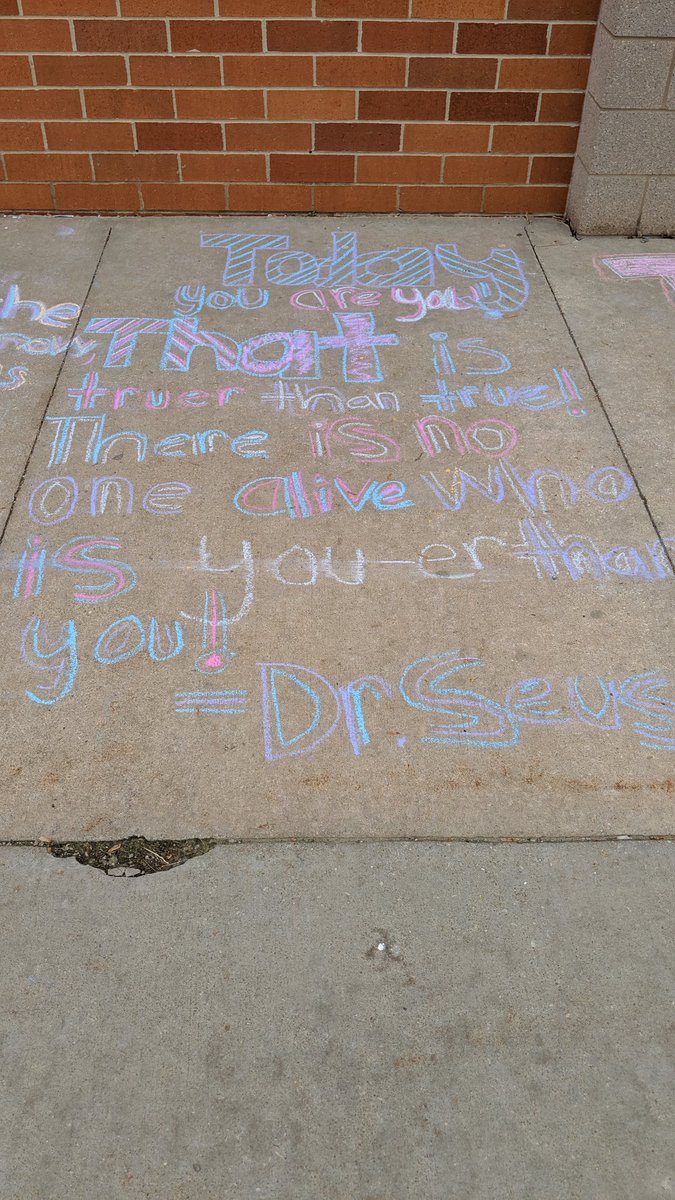 Today
you are you!
That is
truer than true!
There is no
one alive who
is you-er than
you!
=Dr. Seuss
the